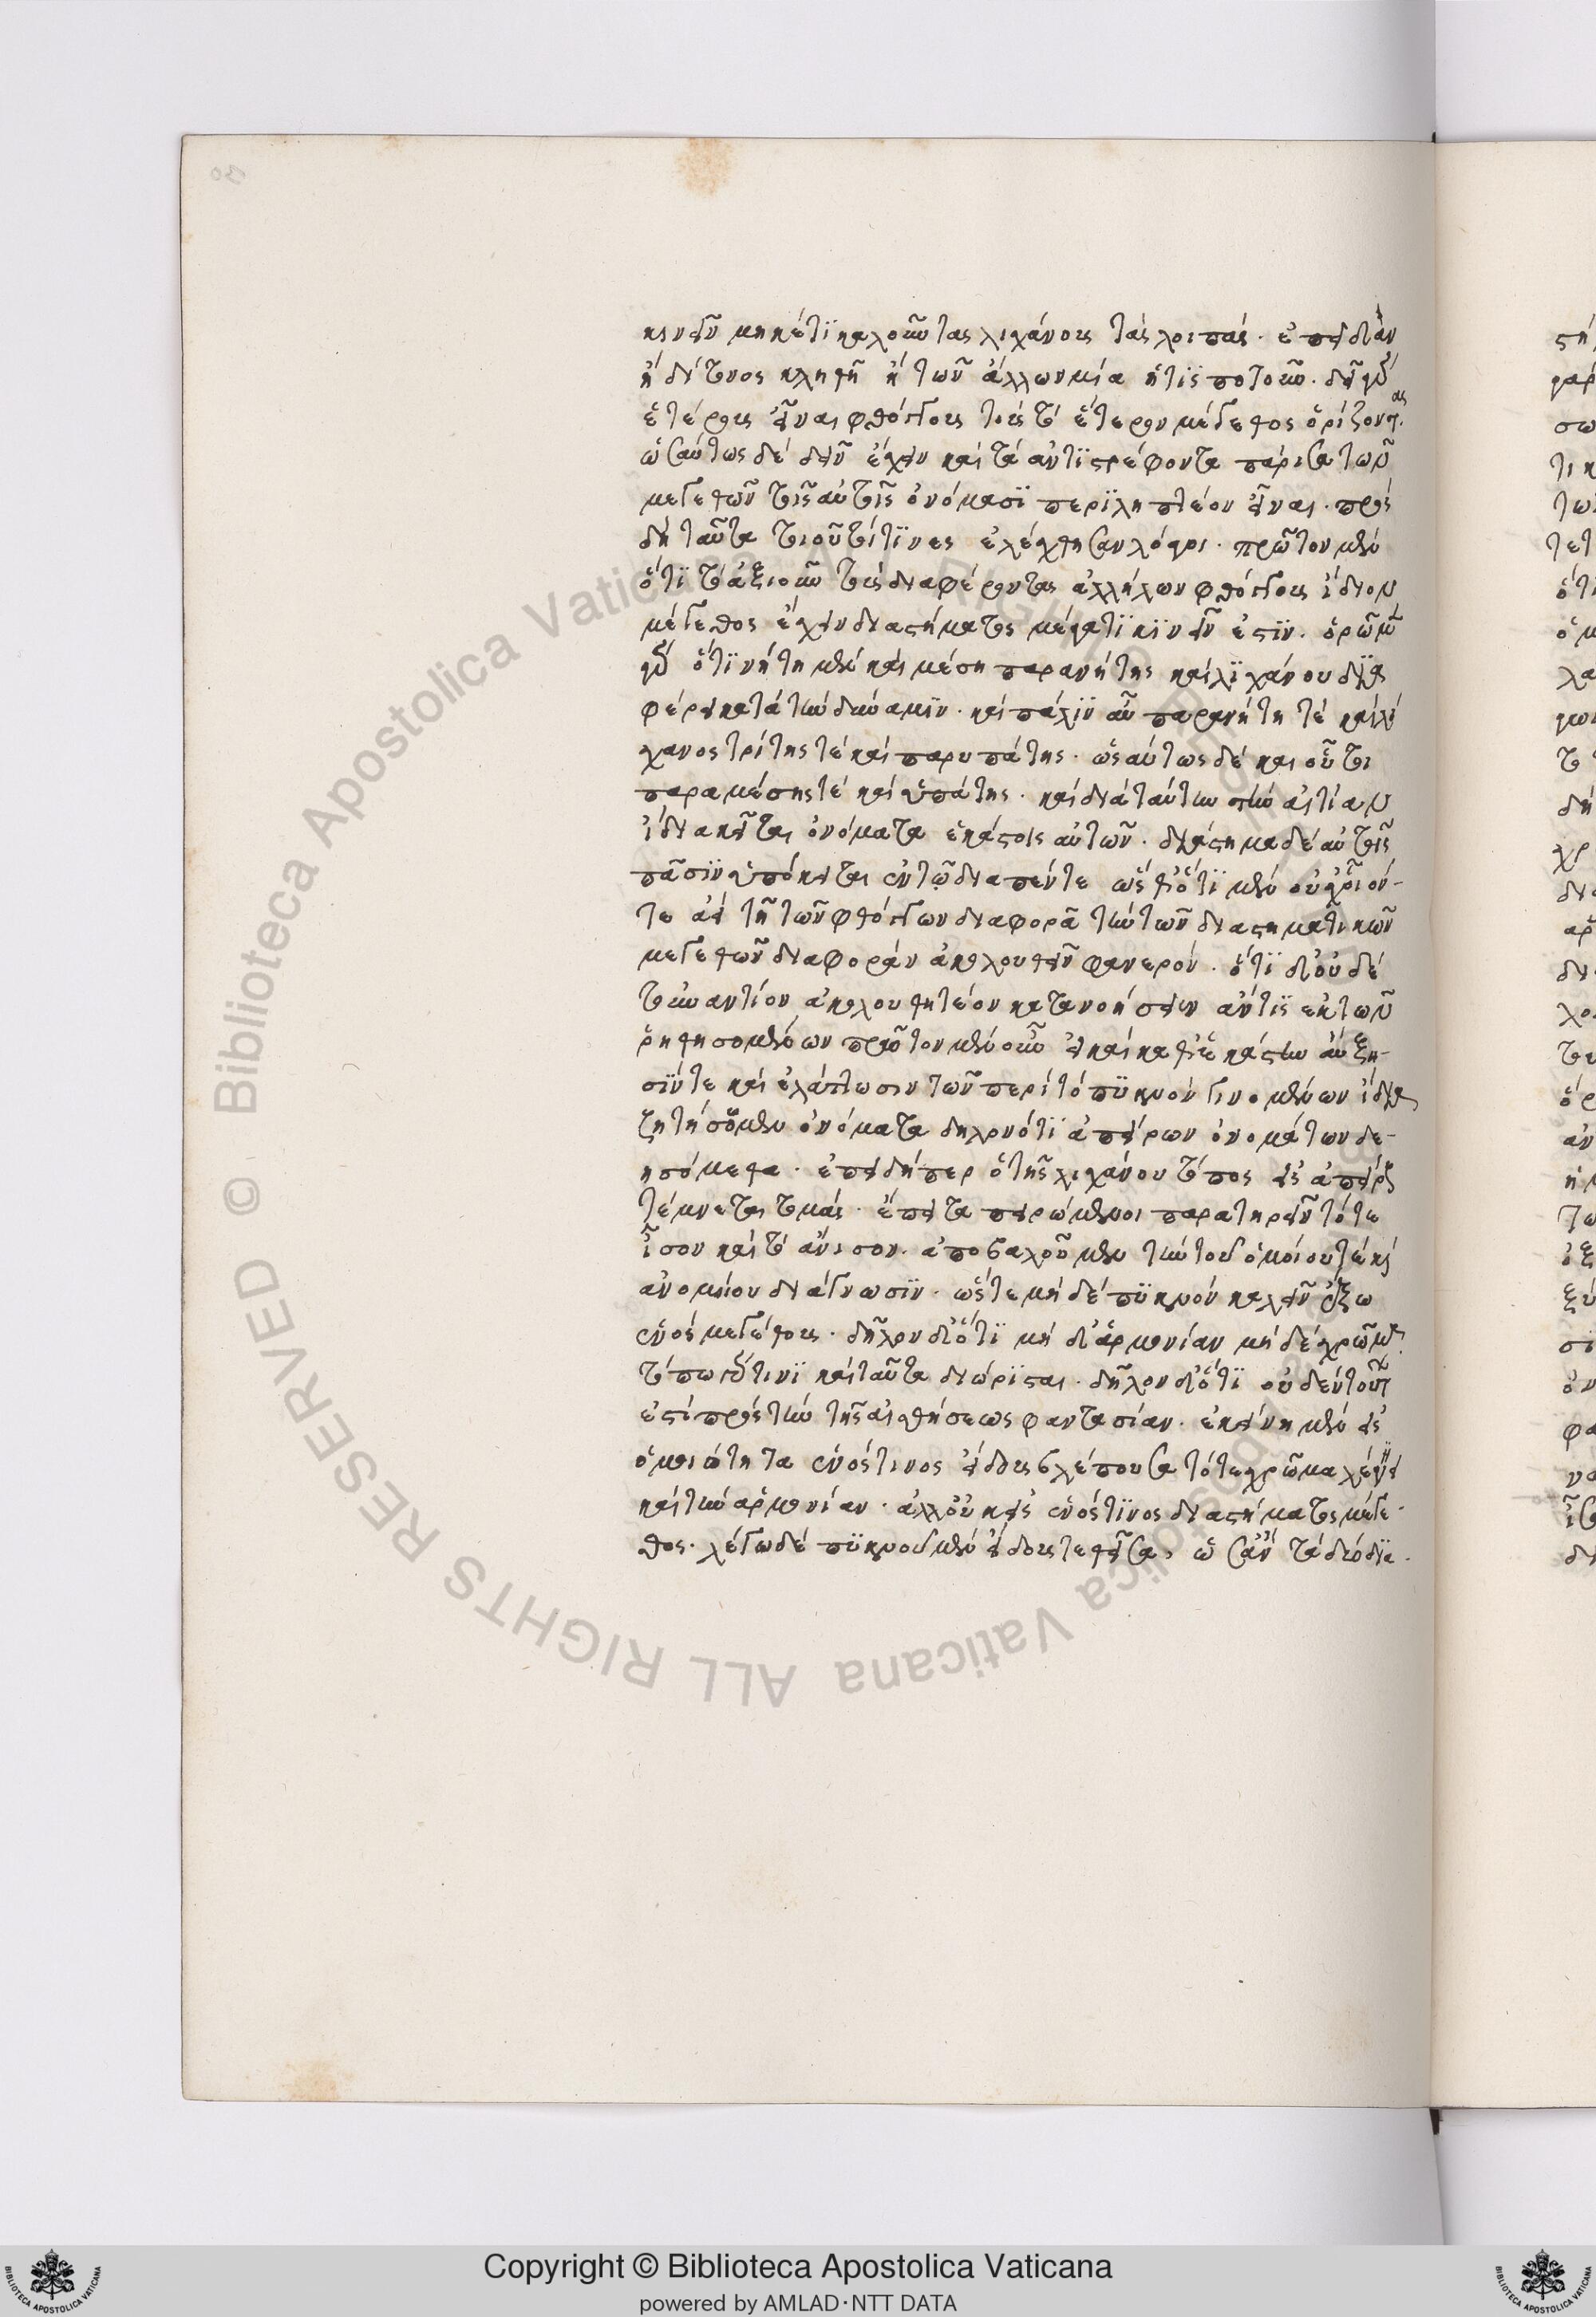 κινεῖν μηκέτϊ καλοῦντας λιχάνους τὰς λοιπάς· ἐπειδὰν
ἡ δίτονος κληθῆ ἢ τῶν ἄλλων μία ἥτϊς ποτοῦν. δεῖν γὰρ
ἑτέρους εἶναι φθόγγους τοὺς τὸ ἕτερον μέγεθος ὁρίζοντας.
ὡσαύτως δὲ δεῖν ἔχειν καὶ τὰ ἀντϊστρέφοντα πάρισα τῶν
μεγεθῶν τοῖς αὐτοῖς ὀνόμασϊ περϊληπτέον εἶναι. πρὸς
δὴ ταῦτα τοιοῦτοί τϊνες ἐλέχθησαν λόγοι. πρῶτον μὲν
ὅτϊ τὸ ἀξιοῦν τοὺς διαφέροντας ἀλλήλων φθόγγους ἴδιον
μέγεθος ἔχειν διαστήματος μέγα τϊ κϊνεῖν ἐστϊν. ὁρῶμεν
γὰρ ὅτϊ νήτη μὲν καὶ μέση παρανήτης καὶ λϊχάνου δϊα
φέρει κατὰ τὴν δύναμϊν. καὶ πάλϊν αὖ παρανήτη τὲ καὶ λι
χανος τρίτης τὲ καὶ παρυπάτης. ὡσαύτως δὲ καὶ οὗτοι
παραμέσης τὲ καὶ ὑπάτης. καὶ διὰ ταύτην τὴν αἰτίαν
ἴδια κεῖται ὀνόματα ἑκάστοις αὐτῶν. διάστημα δὲ αὐτοῖς
πᾶσϊν ὑπόκειται ἓν τῷ διαπέντε ὥσθ' ὅτϊ μὲν οὐχ οἷόν-
τε ἀεὶ τῆ τῶν φθόγγων διαφορᾶ τὴν τῶν διαστηματικῶν
μεγεθῶν διαφορὰν ἀκολουθεῖν φανερόν. ὅτϊ δ' οὐδὲ
τοὐναντίον ἀκολουθητέον κατανοήσειεν ἄν τϊς ἐκ τῶν
ῥηθησομένων πρῶτον μὲν οὖν εἰ καὶ καθ' ἑκάστην αὔξη-
σϊν τε καὶ ἐλάττωσιν τῶν περὶ τὸ πϋκνὸν γινομένων ἴδια
ζητήσομεν ὀνόματα δηλονότϊ ἀπείρων ὀνομάτων δε-
ησόμεθα. ἐπειδήπερ ὁ τῆς λιχάνου τόπος εἰς ἀπείρους
τέμνεται τομάς. ἔπειτα πειρώμενοι παρατηρεῖν τό τε
ἶσον καὶ τὸ ἄνισον. ἀποβαλοῦμεν τὴν τοῦ ὁμοίου τὲ καὶ
ἀνομοίου διάγνωσϊν. ὥστε μὴ δὲ πϋκνὸν καλεῖν ἔξω
ἑνὸς μεγέθους. δῆλον δ' ὅτϊ μὴ δ' ἁρμονίαν μὴ δὲ χρῶμα.
τόπω γάρ τινϊ καὶ ταῦτα διώρϊσται. δῆλον δ' ὅτϊ οὐδὲν τούτων
ἐστὶ πρὸς τὴν τῆς αἰσθήσεως φαντασίαν. ἐκείνη μὲν εἰς
ὁμοιότητα ἑνός τινος εἴδους βλέπουσα τό τε χρῶμα λέγει
καὶ τὴν ἁρμονίαν. ἀλλ' οὐκ εἰς ἑνός τϊνος διαστήματος μέγε-
θος. λέγω δὲ πϋκνοῦ μὲν εἶδους τεθεῖσα, ὡσὰν τὰ δύο δια-